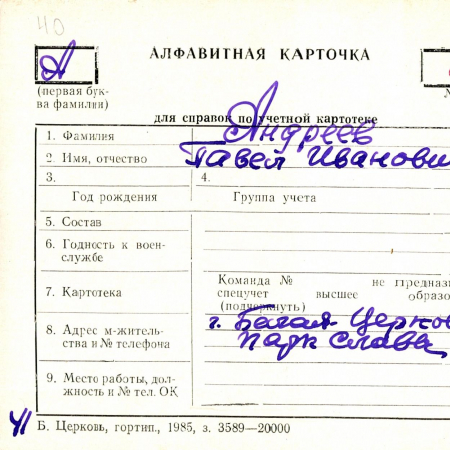 40
АЛФАВИТНАЯ КАРТОЧКА
А
(первая бук-
ва фамилии)
для справок по учетной картотеке
1. Фамилия Андреев
2. Имя, отчество Павел Иванови
3. 4.
Год рождения Группа учета
5. Состав
6. Годность к воен-
службе
7. Картотека
Команда № не предназ
спецучет высшее образо
(подчеркнуть)
8. Адрес м-житель-
ства и № телефона
г. Белая Церков
Парк Славы
9. Место работы, дол-
жность и № тел. ОК
41
Б. Церковь, гортип., 1985, з. 3589—20000